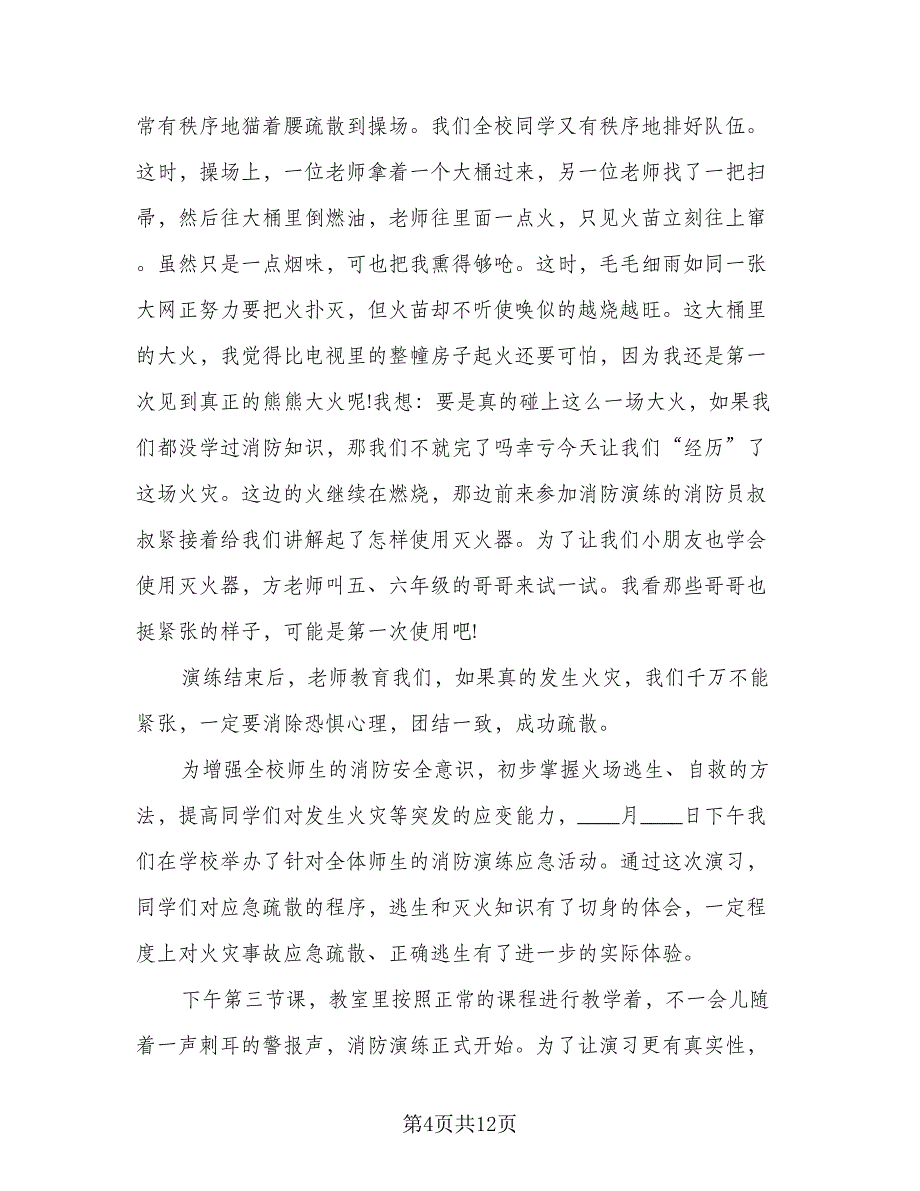 常有秩序地猫着腰疏散到操场。我们全校同学又有秩序地排好队伍。
这时，操场上，一位老师拿着一个大桶过来，另一位老师找了一把扫
帚，然后往大桶里倒燃油，老师往里面一点火，只见火苗立刻往上窜
。虽然只是一点烟味，可也把我熏得够呛。这时，毛毛细雨如同一张
大网正努力要把火扑灭，但火苗却不听使唤似的越烧越旺。这大桶里
的大火，我觉得比电视里的整幢房子起火还要可怕，因为我还是第一
次见到真正的熊熊大火呢!我想：要是真的碰上这么一场大火，如果我
们都没学过消防知识，那我们不就完了吗幸亏今天让我们“经历”了
这场火灾。这边的火继续在燃烧，那边前来参加消防演练的消防员叔
叔紧接着给我们讲解起了怎样使用灭火器。为了让我们小朋友也学会
使用灭火器，方老师叫五、六年级的哥哥来试一试。我看那些哥哥也
挺紧张的样子，可能是第一次使用吧!
演练结束后，老师教育我们，如果真的发生火灾，我们千万不能
紧张，一定要消除恐惧心理，团结一致，成功疏散。
为增强全校师生的消防安全意识，初步掌握火场逃生、自救的方
法，提高同学们对发生火灾等突发的应变能力，____月____日下午我
们在学校举办了针对全体师生的消防演练应急活动。通过这次演习，
同学们对应急疏散的程序，逃生和灭火知识有了切身的体会，一定程
度上对火灾事故应急疏散、正确逃生有了进一步的实际体验。
下午第三节课，教室里按照正常的课程进行教学着，不一会儿随
着一声刺耳的警报声，消防演练正式开始。为了让演习更有真实性，
第4页共12页